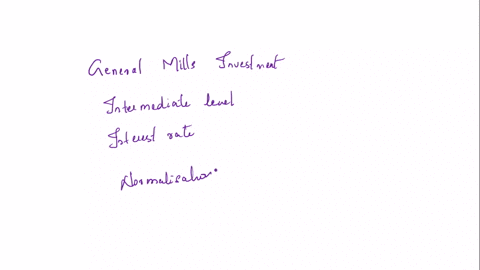 General Mills Investment
Intermediate level
Interest rate
Normalisation